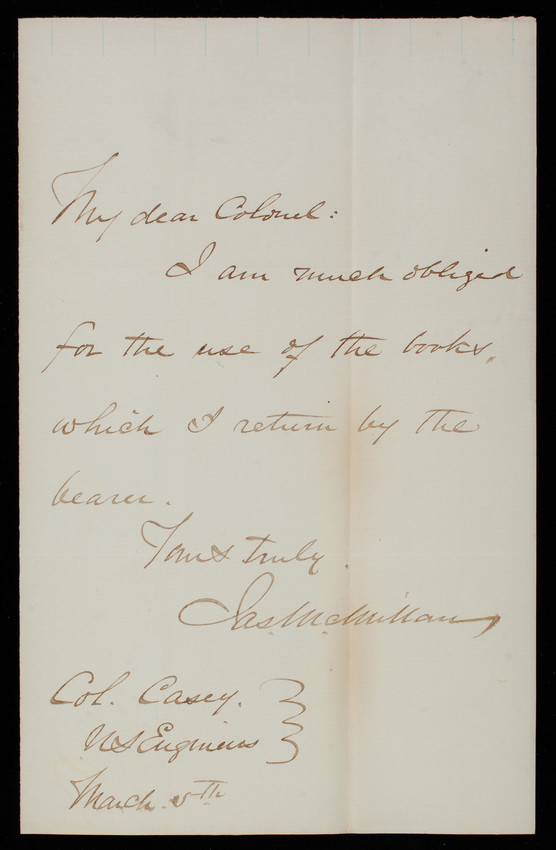 My dear Colonel:
I am much obliged
for the use of the books,
which I return by the
bearer.
Yours truly
Jas McMillan
Col. Casey.
US Engineers
March 5th